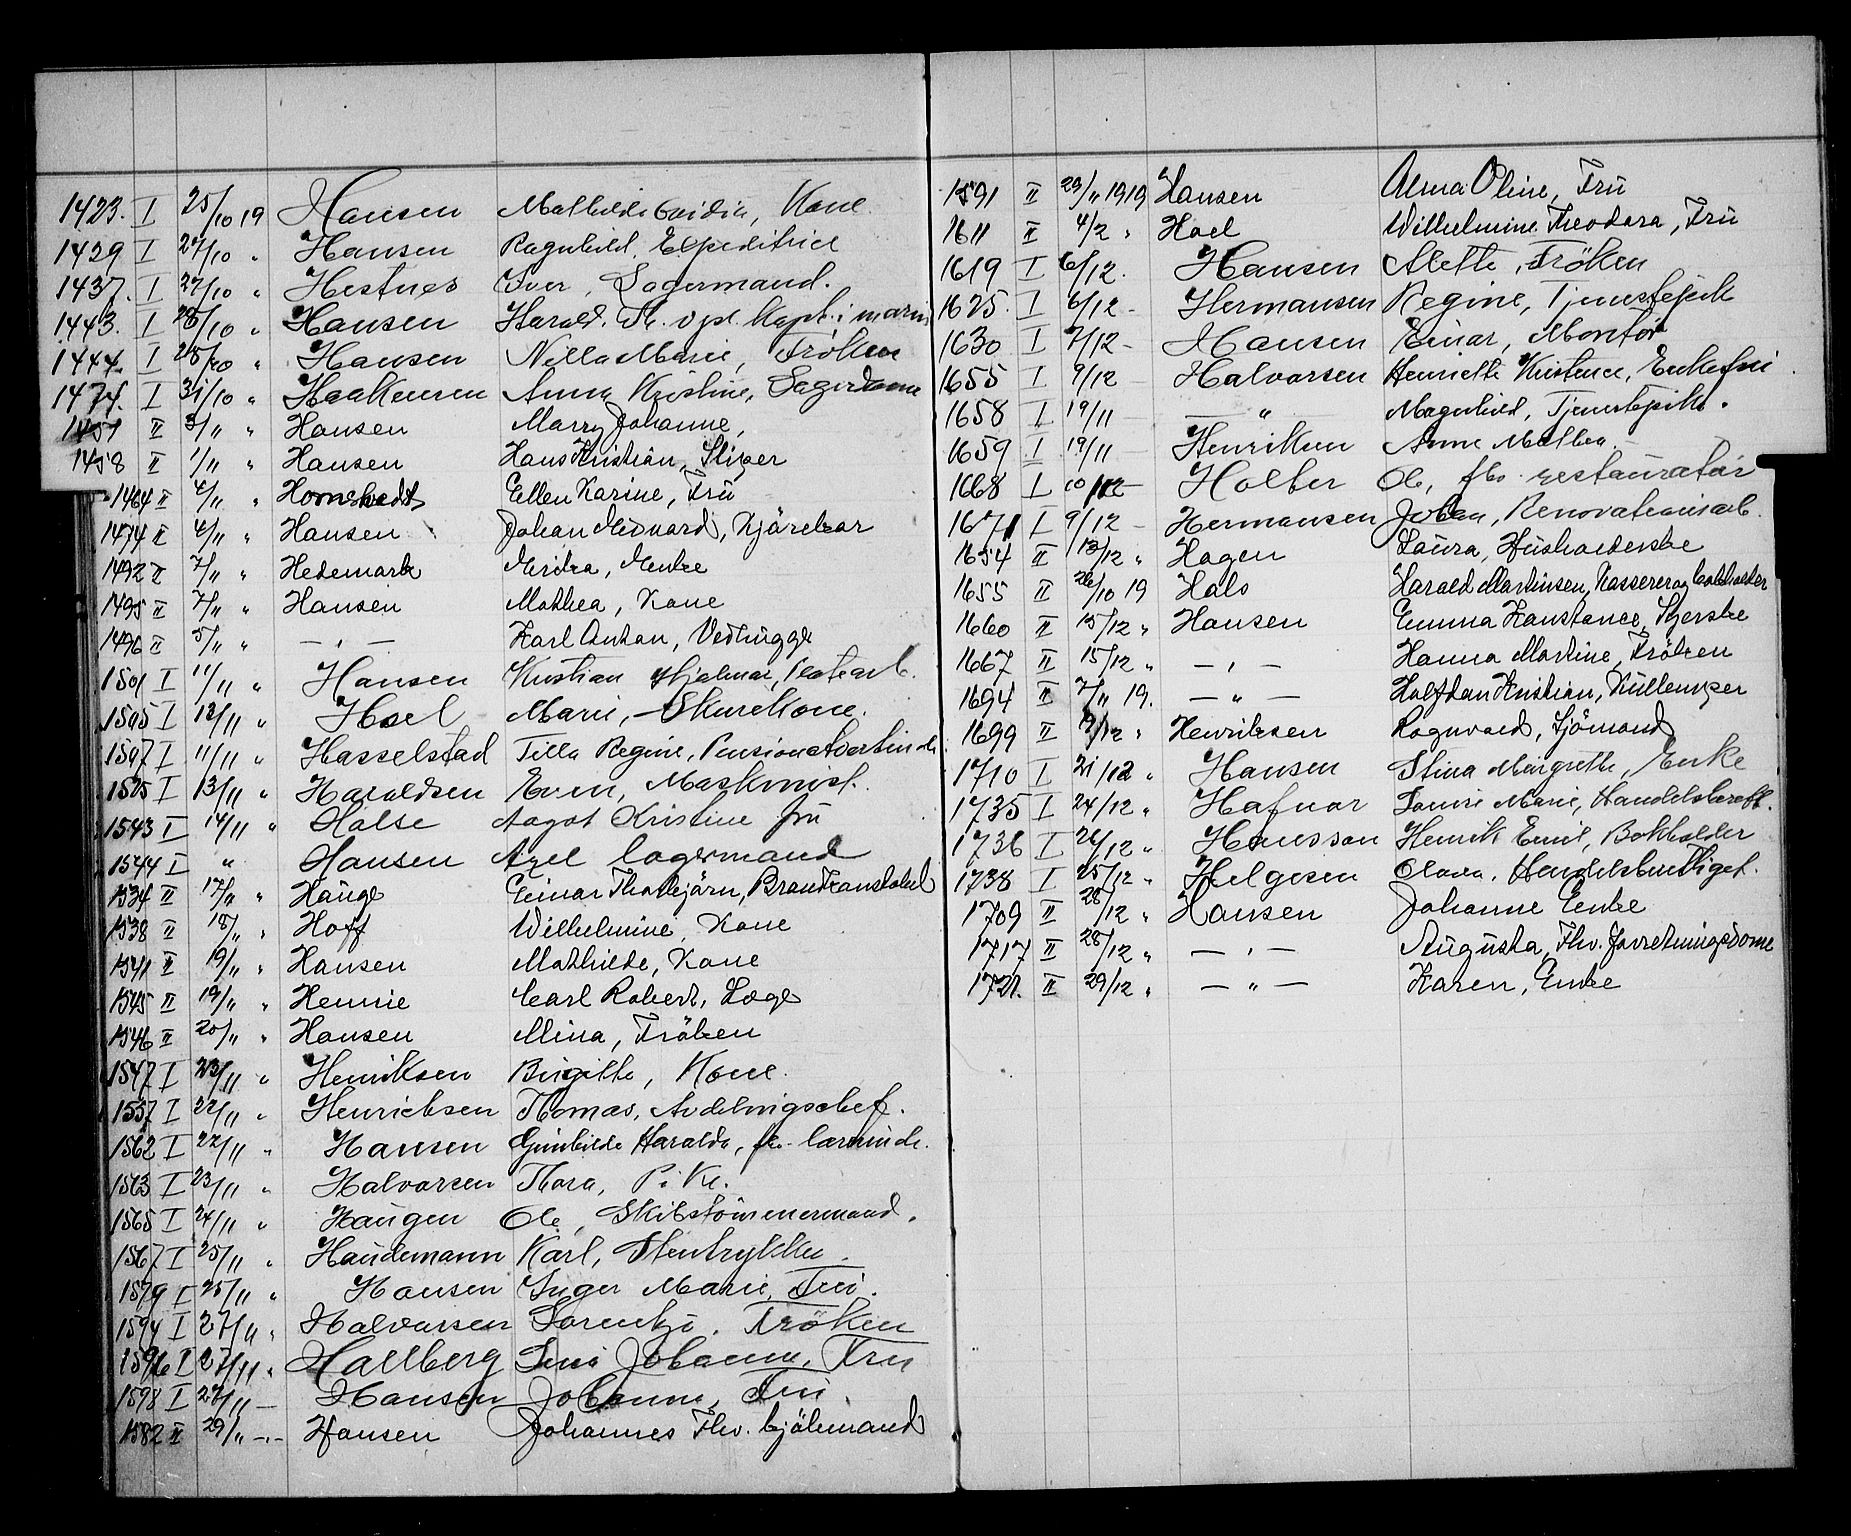 1423. I 25/10 19 Hansen Mathilde Ovidia, Kone.
1429 I 27/10 " Hansen Ragnhild, Expeditrice
1437. I 27/10 " Hestnes Iver, Lagermand.
1443. I 28/10 " Hansen Harald. Th. vpl. Kapt. i marin
1444. I 28/10 " Hansen Nilla Marie, Frøken
1474. I 31/10 " Haakensen Anna Kristine, Lagerdame
1451 II 3/11 " Hansen Marry Johanne,
1458 II 1/11 " Hansen Hans Kristian, Sliper
1464 II 4/11 " Hornstvedt Ellen Karine, Fru
1474 II 4/11 " Hansen Johan Medvard, Kjørekar
1492 II 7/11 " Hedemark Enke
1495 II 7/11 " Hansen Mathea, Kone
1496 II 5/11 " — " — Karl Anton, Vedhugger
1501 I 11/11 " Hansen Kristian Hjalmar,
1505 I 12/11 " Hoel Marie, Skurekone.
1507 I 11/11 " Hasselstad Tilla Regine, Pensionatvertinde
1525 I 13/11 " Haraldsen Even, Maskinist.
1543 I 14/11 " Halse Aagot Kristine fru
1544 I " Hansen Axel lagermand
1534 II 17/11 " Hauge Einar Thorbjørn, Brandkonstabel
1538 II 18/11 " Hoff Wilhelmine, Kone
1541 II 19/11 " Hansen Mathilde, Kone
1545 II 19/11 " Hennie Carl Robert, Læge
1546 II 20/11 " Hansen Mina, Frøken
1547 I 23/11 " Henriksen Birgitte, Kone.
1557 I 22/11 " Henrichsen Thomas, Avdelingschef.
1562 I 22/11 " Hansen Gunhilde Haralda, fr. lærerinde.
1563 I 23/11 " Halvorsen Thora, Pike.
1565 I 24/11 " Haugen Ole, Skibstømmermand.
1567 I 25/11 " Haudemann Karl, Stentrykker.
1579 I 25/11 " Hansen Inger Marie, Fru.
1594 I 27/11 " Halvorsen Lorentze. Frøken
1596 I 27/11 " Hallberg Lina Johanne, Fru
1598 I 27/11 — Hansen Johanne, Fru.
1582 II 29/11 -"- Hansen Johannes Thv. Sjømand
1591 II 29/11 1919 Hansen Alma Oline, Fru
1611 II 4/2 " Hoel Wilhelmine Theodora, Fru
1619 I 6/12. Hansen Alette, Frøken
1625. I 6/12 - Hermansen Regine, Tjenestepike
1630 I 7/12 - Hansen Einar, Montør
1655 I 9/12 — Halvorsen Henriette Kristence, Enkefru
1658 I 19/11 — — " — Magnhild, Tjenestepike.
1659 I 19/11 — Henriksen Anne Mathea.
1668 I 10/12 — Holter Ole, fhv. restauratør
1671 I 9/12 - Hermansen Johan, Renovationsarb.
1654 II 13/12 " Hagen Laura, Husholderske
1655 II 26/10 19 Hals Harald Martinsen, Kasserer og Bokholder
1660 II 15/12 " Hansen Emma Konstance, Syerske
1667 II 15/12 " — " — Hanna Martine, Frøken
1694 II 7/11 19. — " — Halfdan Kristian, Kullemper
1699 II 19/12 " Henriksen Ragnvald, Sjømand
1710 I 21/12 " Hansen Stina Margrethe, Enke
1735 I 24/12 " Hafnor Lovise Marie, Handelsberett.
1736 I 24/12 " Hansson Henrik Emil, Bokholder
1738 I 25/12 " Helgesen Olava, Handelsberettiget.
1709 II 28/12 " Hansen Johanne Enke
1717 II 28/12 " — " — Augusta, Fhv. forretningsdame
1721. II 29/12 " — " — Karen, Enke